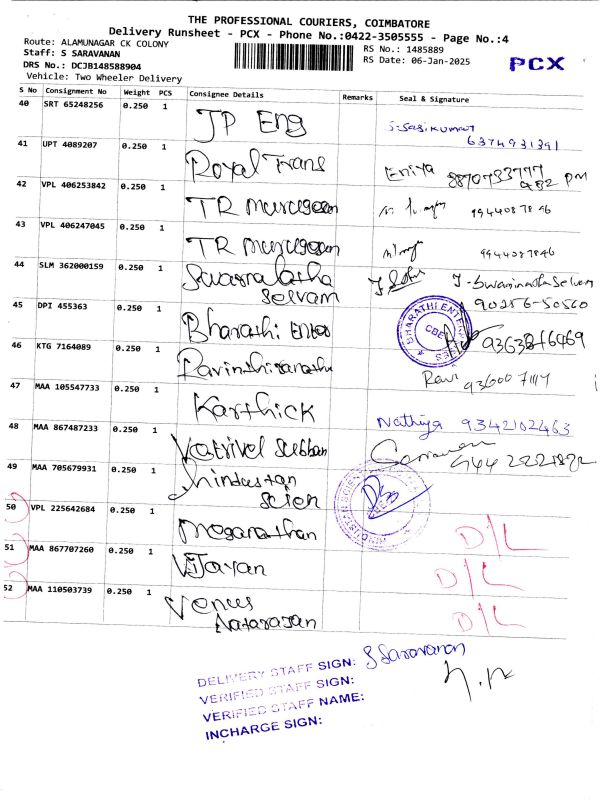 THE PROFESSIONAL COURIERS, COIMBATORE
Delivery Runsheet - PCX - Phone No.:0422-3505555 - Page No.:4
Route: ALAMUNAGAR CK COLONY
Staff: S SARAVANAN
DRS No.: DCJB148588904
Vehicle: Two Wheeler Delivery
RS No.: 1485889
RS Date: 06-Jan-2025
PCX
S No Consignment No Weight PCS Consignee Details Remarks Seal & Signature
40 SRT 65248256 0.250 1 JP Eng S-Sasikumar
6374931391
41 UPT 4089207 0.250 1 Royal Trans Eniya 8870733777
PM
42 VPL 406253842 0.250 1 TR Murugesan 9944087846
43 VPL 406247045 0.250 1 TR Murugesan 9944087846
44 SLM 362000159 0.250 1 Swarnalatha
Selvam
J-Swaminatha Selvam
90256-50560
45 DPI 455363 0.250 1 Bharathi Enter
BHARATHI ENTERPRISES
CBE
46 KTG 7164089 0.250 1 Ravinthiranathan Ravi
47 MAA 105547733 0.250 1 Karthick Nathiya 9342102463
48 MAA 867487233 0.250 1 Vatrivel Subban
49 MAA 705679931 0.250 1 Hindustan
Scien
50 VPL 225642684 0.250 1 Moganathan D/L
51 MAA 867707260 0.250 1 VJayan D/L
52 MAA 110503739 0.250 1 Venus
Natarajan
D/L
DELIVERY STAFF SIGN: S Saravanan
VERIFIED STAFF SIGN:
VERIFIED STAFF NAME:
INCHARGE SIGN: